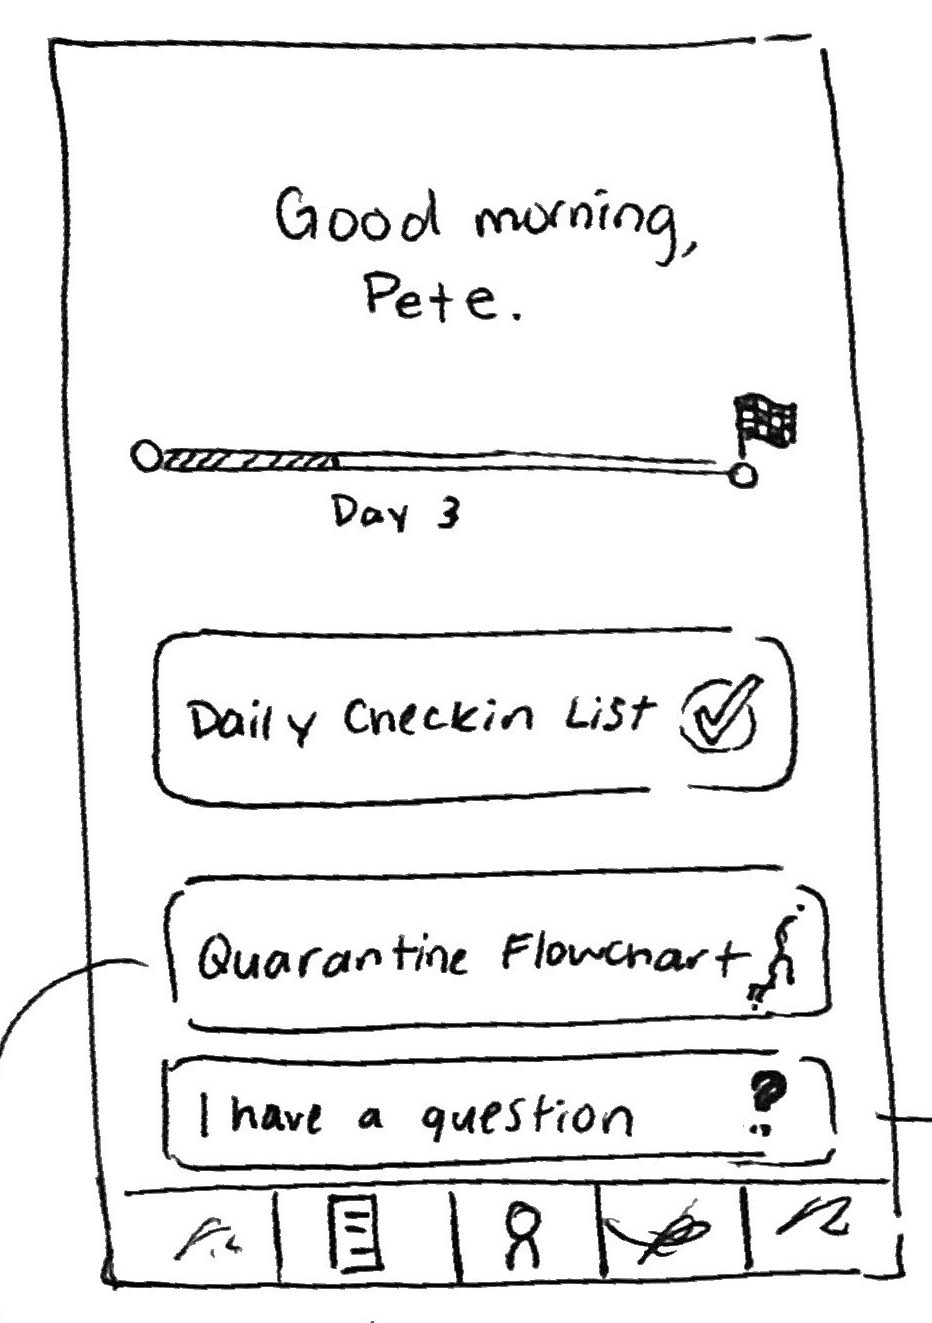 Good morning,
Pete.
Day 3
Daily Checkin List
Quarantine Flowchart
I have a question ?